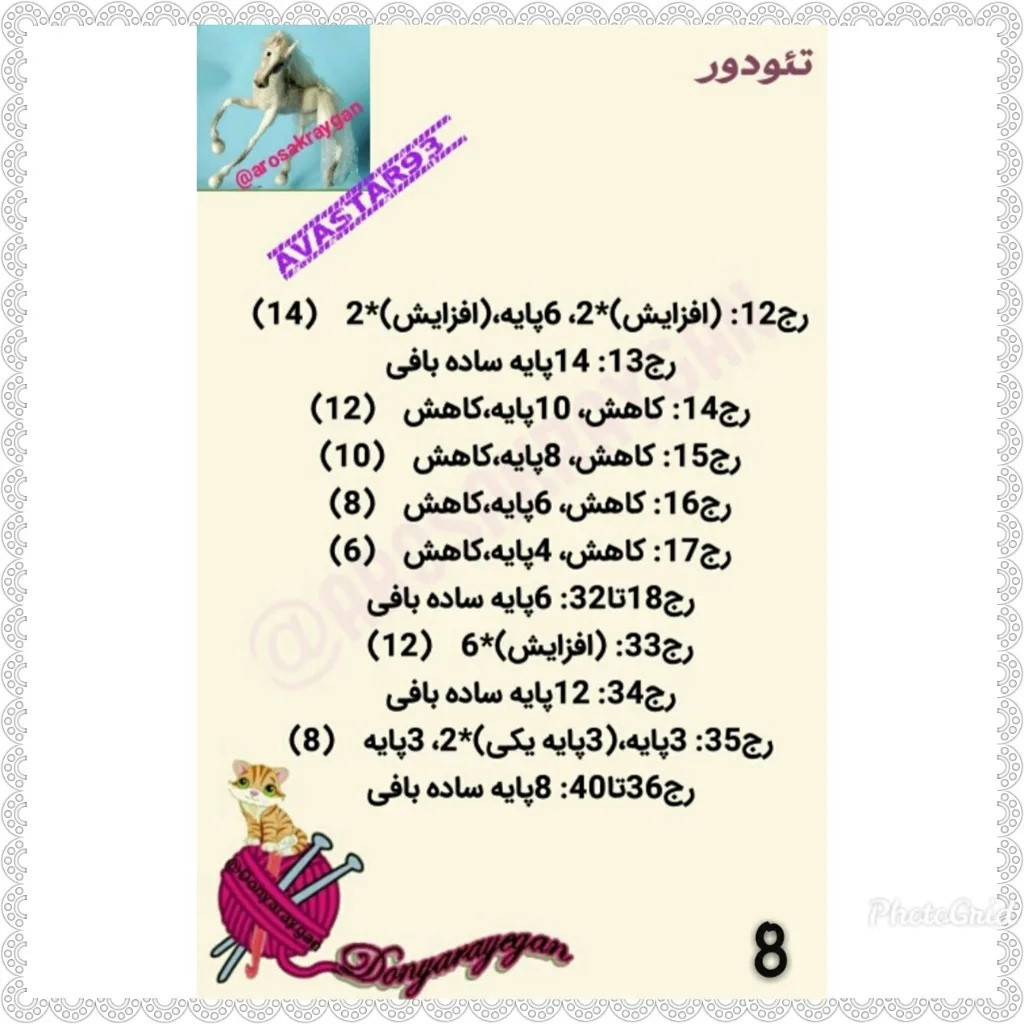 تئودور
@arosakraygan
AVASTAR93
رج12: (افزایش)*2، 6پایه،(افزایش)*2 (14)
رج13: 14پایه ساده بافی
رج14: کاهش، 10پایه،کاهش (12)
رج15: کاهش، 8پایه،کاهش (10)
رج16: کاهش، 6پایه،کاهش (8)
رج17: کاهش، 4پایه،کاهش (6)
رج18تا32: 6پایه ساده بافی
رج33: (افزایش)*6 (12)
رج34: 12پایه ساده بافی
رج35: 3پایه،(3پایه یکی)*2، 3پایه (8)
رج36تا40: 8پایه ساده بافی
@AROSAKRAYGAN
@Donyaraygan
Donyarayegan
8
PhotoGrid